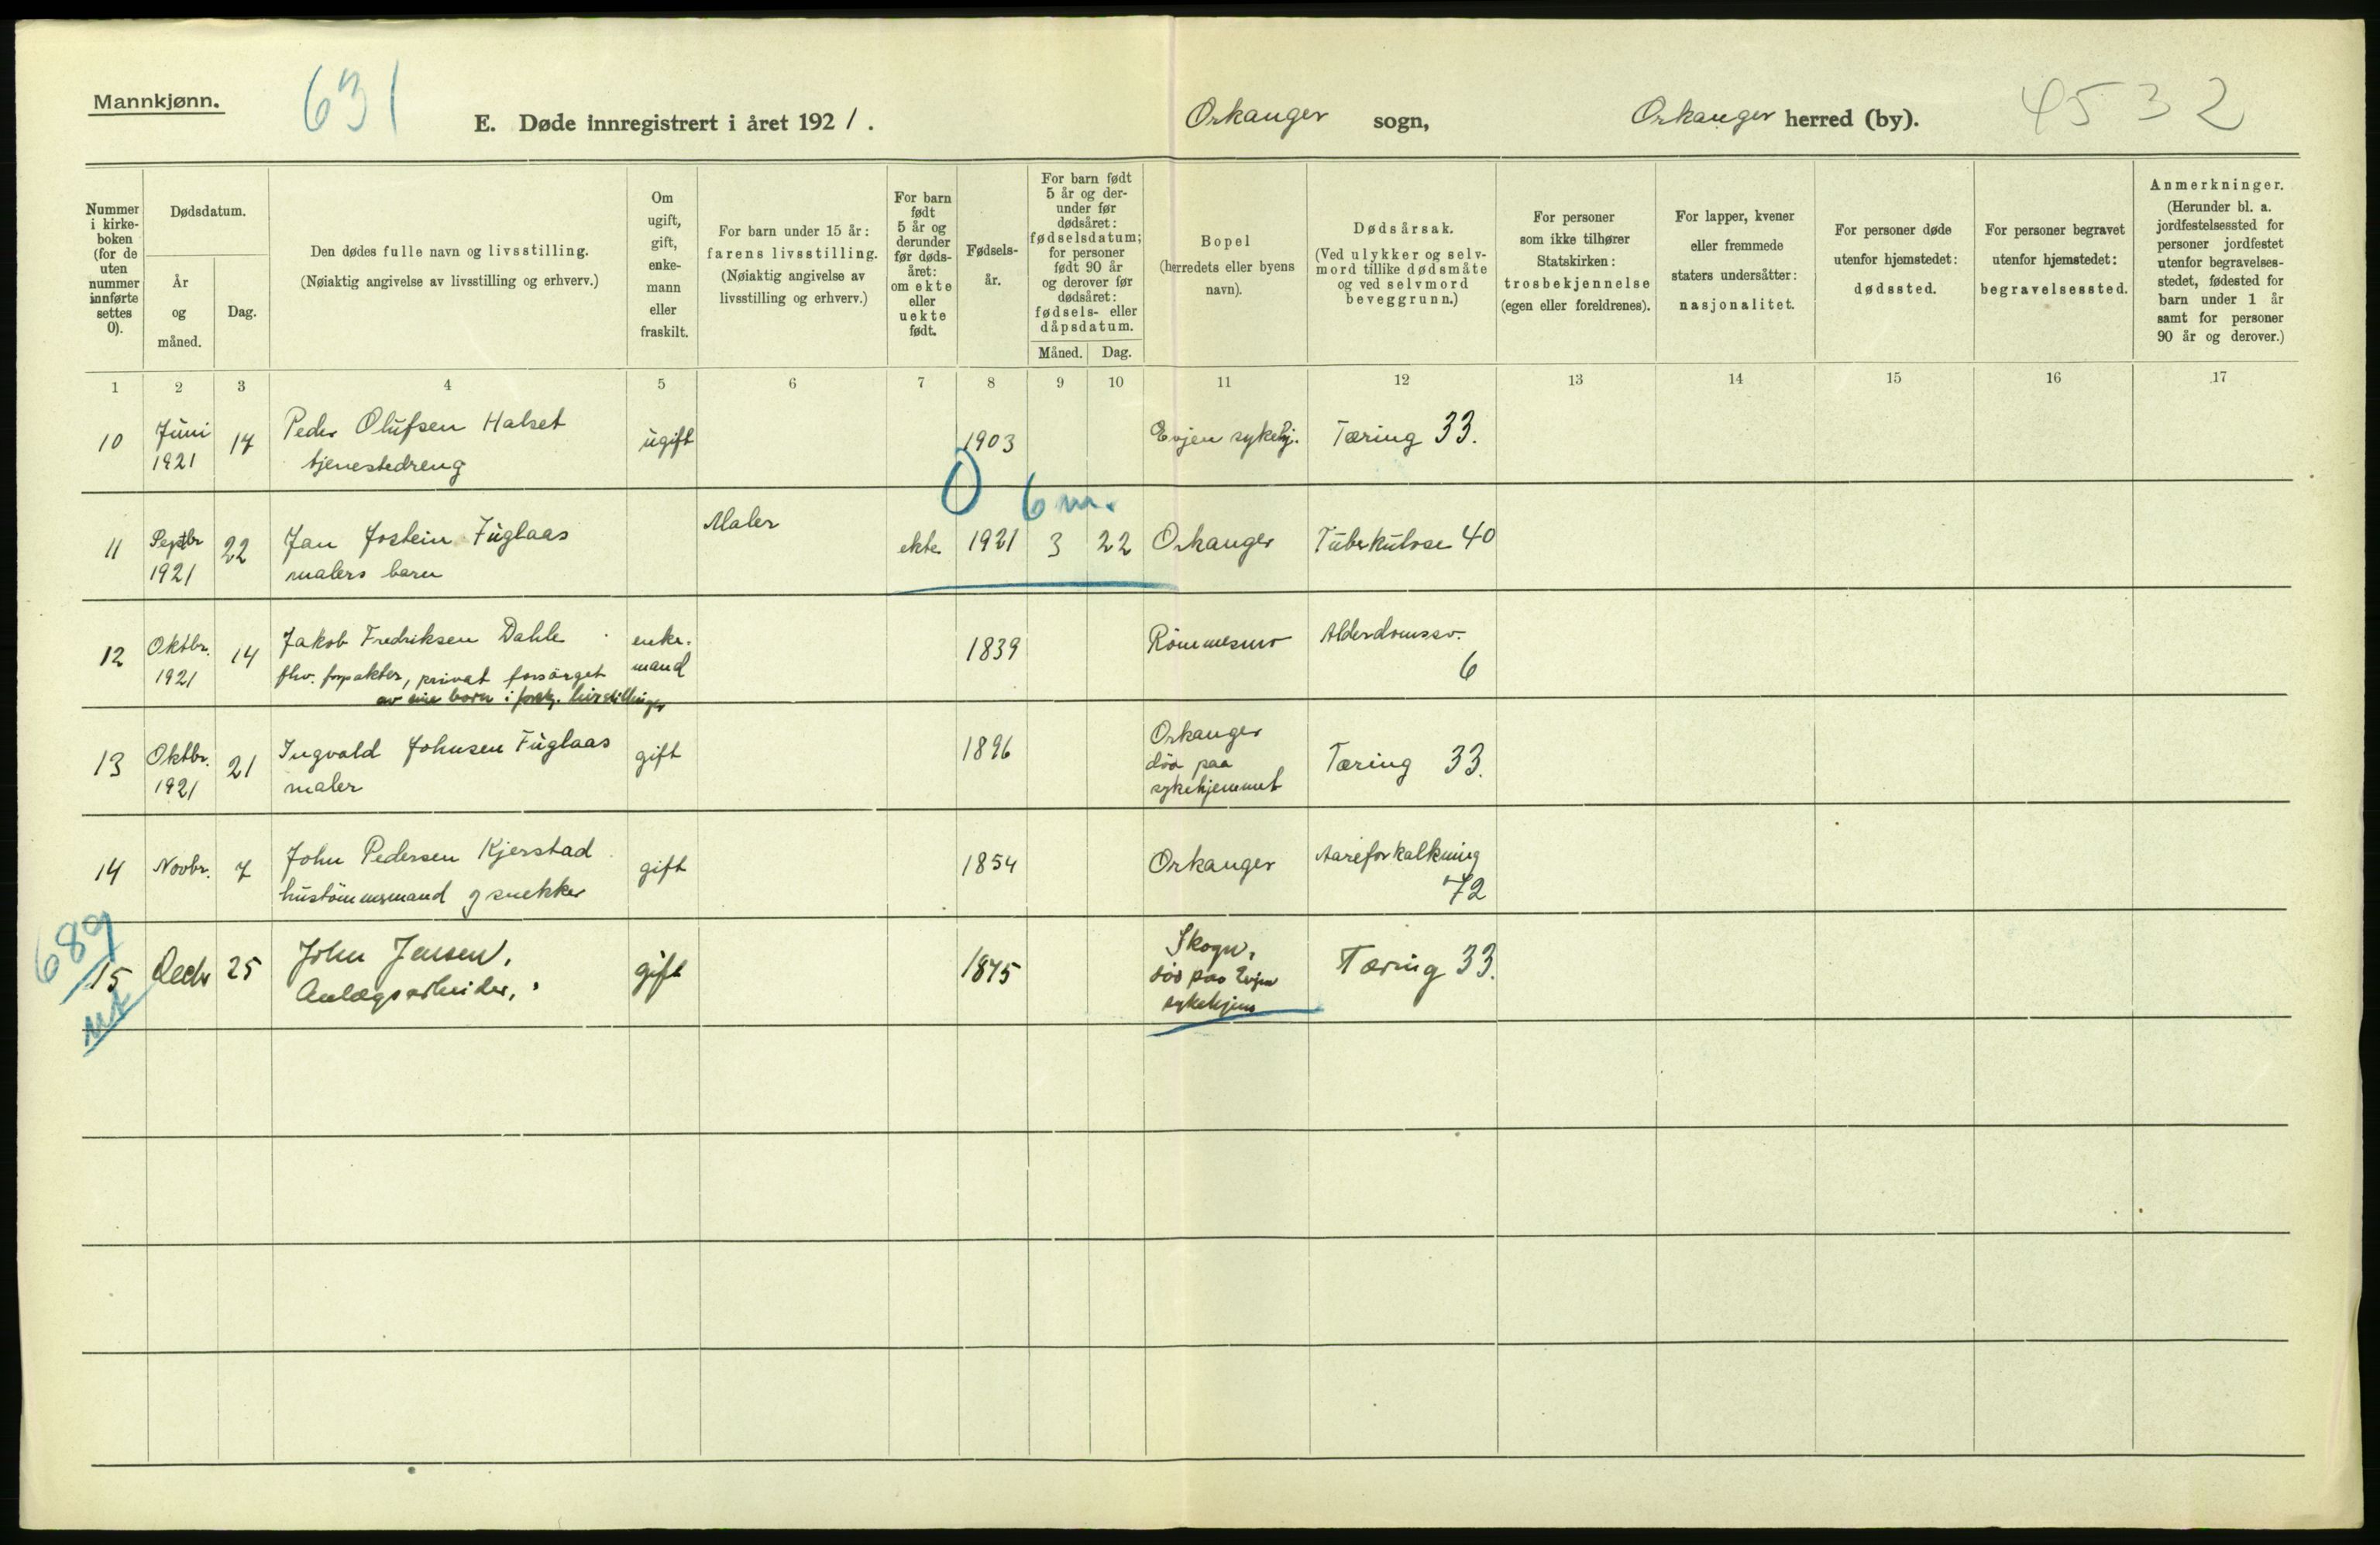 Mannkjønn.
631
E. Døde innregistrert i året 1921.
Orkanger sogn,
Orkanger herred (by).
4532
Nummer i kirke- boken (for de uten nummer innførte settes 0).
Dødsdatum.
År og måned.
Dag.
Den dødes fulle navn og livsstilling.
(Nøiaktig angivelse av livsstilling og erhverv.)
Om ugift, gift, enke- mann eller fraskilt.
For barn under 15 år:
farens livsstilling.
(Nøiaktig angivelse av
livsstilling og erhverv.)
For barn født 5 år og derunder før døds- året: om ekte eller uekte født.
Fødsels- år.
For barn født 5 år og der- under før dødsåret: fødselsdatum; for personer født 90 år og derover før dødsåret: fødsels- eller dåpsdatum.
Måned. Dag.
Bopel
(herredets eller byens
navn).
Dødsårsak.
(Ved ulykker og selv-
mord tillike dødsmåte
og ved selvmord
beveggrunn.)
For personer
som ikke tilhører
Statskirken:
trosbekjennelse
(egen eller foreldrenes).
For lapper, kvener
eller fremmede
staters undersåtter:
nasjonalitet.
For personer døde
utenfor hjemstedet:
dødssted.
For personer begravet
utenfor hjemstedet:
begravelsessted.
Anmerkninger.
(Herunder bl. a.
jordfestelsessted for
personer jordfestet
utenfor begravelses-
stedet, fødested for
barn under 1 år
samt for personer
90 år og derover.)
1 2 3 4 5 6 7 8 9 10 11 12 13 14 15 16 17
10 Juni 1921 17 Peder Olufsen Halset
tjenestedreng
ugift 1903 Evjen sykehj. Tæring 33.
0 6 m.
11 Septbr 1921 22 Jan Jostein Fuglaas
malers barn
Maler ekte 1921 3 22 Orkanger Tuberkulose 40
12 Oktbr. 1921 14 Jakob Fredriksen Dahle
fhv. forpakter, privat forsørget
av sine børn i
enke- mand 1839 Rømmesmo Alderdomssv.
6
13 Oktbr. 1921 21 Ingvald Johnsen Fuglaas
maler
gift 1896 Orkanger
død paa
sykehjemmet
Tæring 33.
14 Novbr. 7 John Pedersen Kjerstad
hustømmermand og snekker
gift 1854 Orkanger Aareforkalkning
72
689
15 Decbr 25 John Jensen,
Anlægsarbeider,
gift 1875 Skogn,
død paa Evjen
sykehjem
Tæring 33.